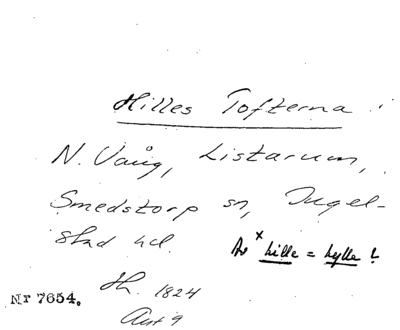 Hilles Tofterna i
N. Vång, Listarum,
Smedstorp sn, Ingel-
stad hd.
Av × hille = hylle?
Sk. 1824
Nr 7654.
Akt 9